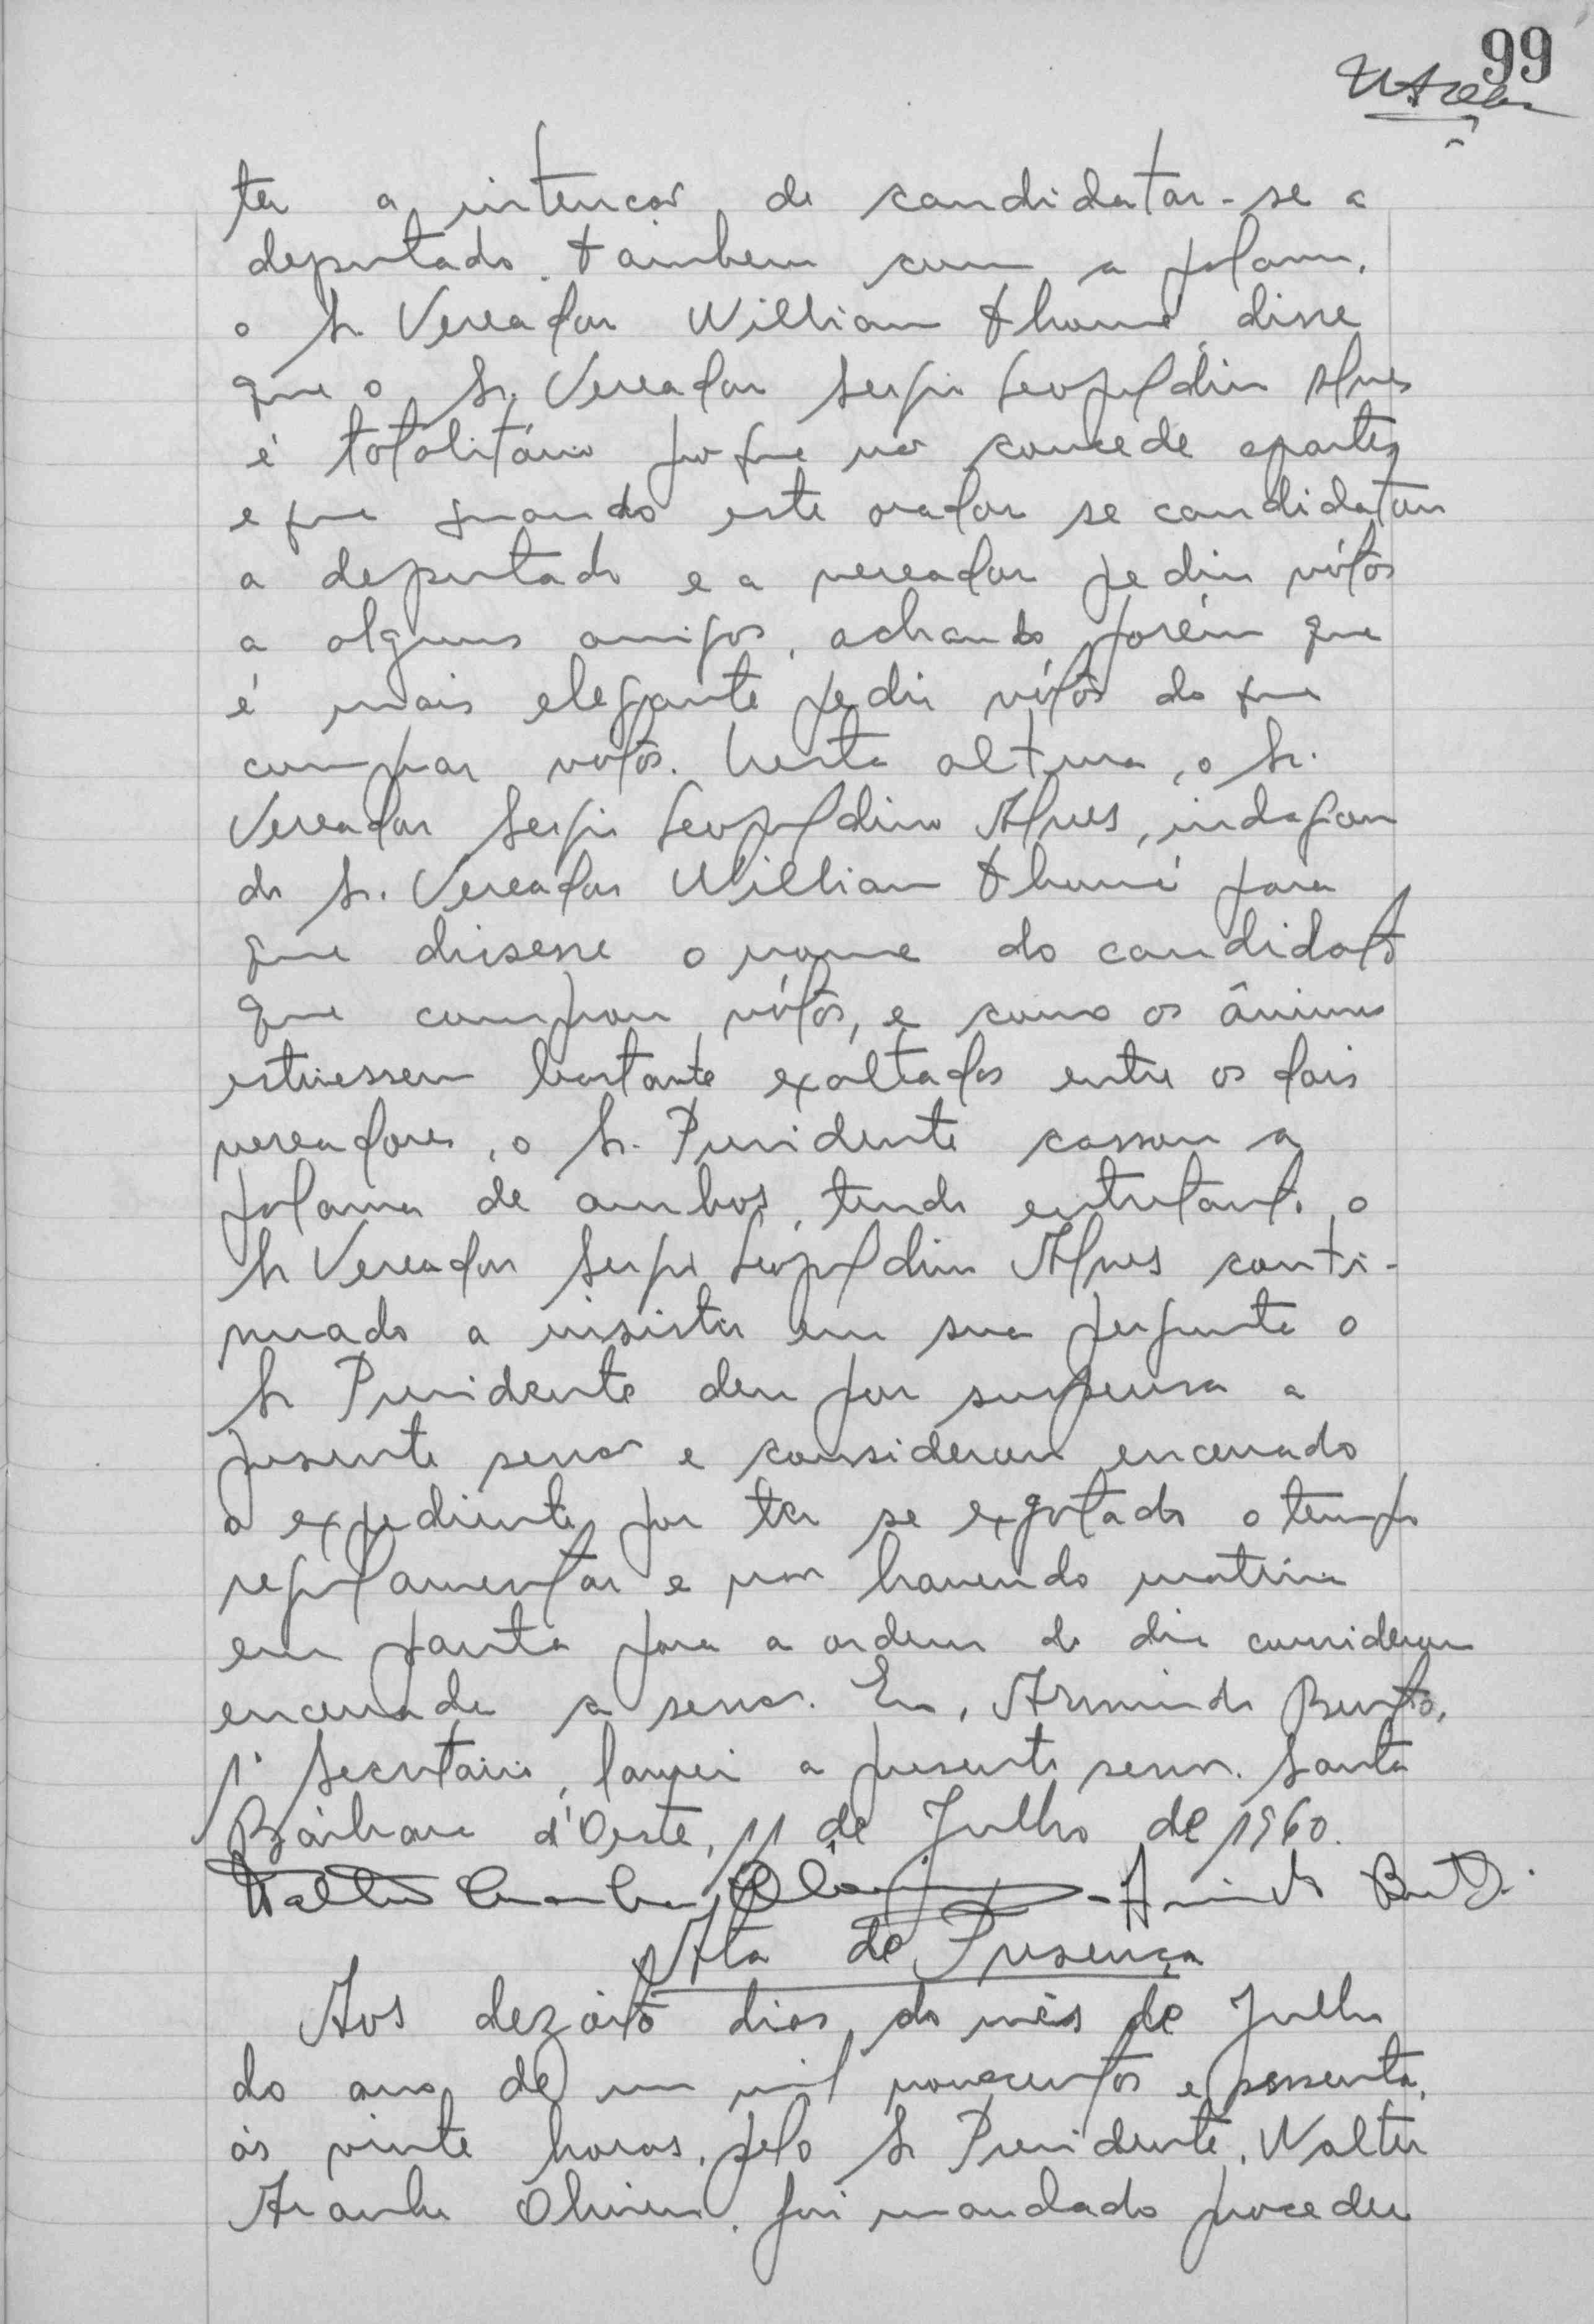 99
ter a intenção de candidatar-se a
deputado. Também com a palavra,
o Sr Vereador William Thomé, disse
que o Sr. Vereador Sergio Leopoldino Alves
é totalitário porque não concede apartes
e que quando este orador se candidatou
a deputado e a vereador pediu vótos
a alguns amigos, achando porém que
é mais elegante pedir vótos do que
comprar votos. Nesta altura, o Sr.
Vereador Sergio Leopoldino Alves, indagou
do Sr. Vereador William Thomé para
que dissesse o nome do candidato
que comprou vótos, e como os ânimos
estivessem bastante exaltados entre os dois
vereadores, o Sr. Presidente cassou a
palavra de ambos, tendo entretanto o
Sr Vereador Sergio Leopoldino Alves conti-
nuado a insistir em sua pergunta o
Sr Presidente deu por suspensa a
presente sessão e considerou encerrado
o expediente por ter se exgotado o tempo
regulamentar e não havendo matéria
em pauta para a ordem do dia considerou
encerrada a sessão. Eu, Armindo Bento,
1º Secretário, lavrei a presente sessão. Santa
Bárbara d'Oeste, 11 de Julho de 1960.
Ata de Presença
Aos dezoito dias do mês de Julho
do ano de um mil novecentos e sessenta,
às vinte horas, pelo Sr Presidente, Walter
Aranha Oliveira, foi mandado proceder